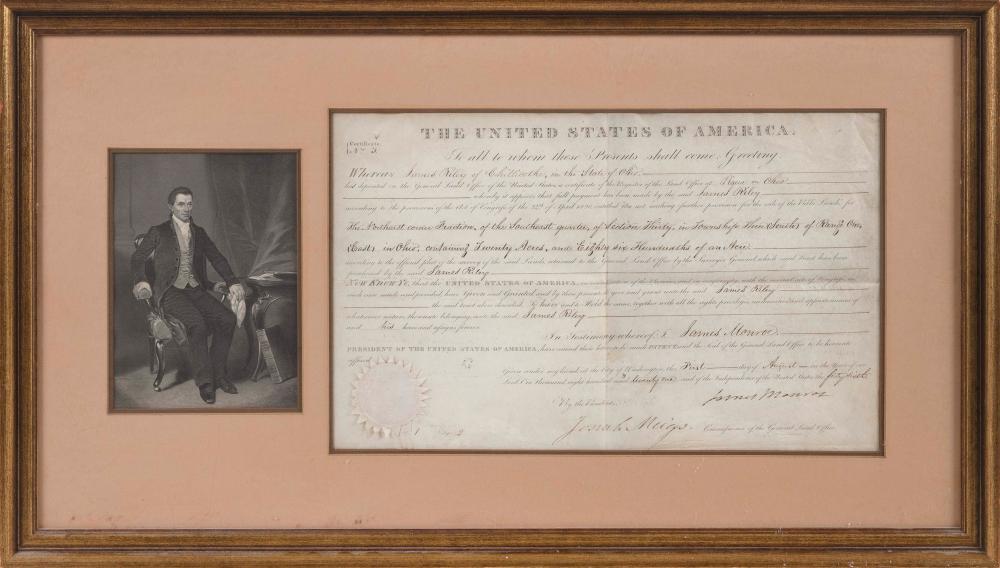 THE UNITED STATES OF AMERICA.
Certificate
No 5
To all to whom these Presents shall come, Greeting.
Whereas James Riley of Chillicothe, in the State of Ohio
has deposited in the General Land Office of the United States, a certificate of the Register of the Land Office at Piqua in Ohio
whereby it appears that full payment has been made by the said James Riley
according to the provisions of the Act of Congress of the 24th of April 1820, entitled An act making further provision for the sale of the Public Lands, for
The Northeast corner Fraction, of the Southeast quarter, of Section Thirty, in Township Three South, of Range One,
East, in Ohio, containing Twenty Acres, and Eighty six Hundredths of an Acre
according to the official plat of the survey of the said Lands, returned to the General Land Office by the Surveyor General which said tract has been
purchased by the said James Riley
NOW KNOW YE, that the UNITED STATES OF AMERICA, in consideration of the Premises, and in conformity with the several acts of Congress, in
such case made and provided, have Given and Granted and by these presents do give and grant unto the said James Riley
the said tract above described: To have and to Hold the same, together with all the rights, privileges, immunities and appurtenances of
whatsoever nature, thereunto belonging, unto the said James Riley
and his heirs and assigns forever.
In Testimony whereof, I James Monroe
PRESIDENT OF THE UNITED STATES OF AMERICA, have caused these letters to be made PATENT and the Seal of the General Land Office to be hereunto
affixed
Given under my hand at the City of Washington, the First day of August in the Year of our
Lord One thousand eight hundred and twenty one and of the Independence of the United States the forty sixth
By the President, James Monroe
Josiah Meigs Commissioner of the General Land Office